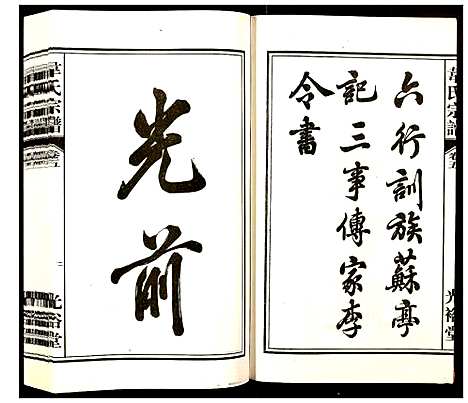 韋氏宗譜
卷五
光裕堂
六行訓族蘇亭
記三事傳家李
令書
光前
韋氏宗譜
卷五
二
光裕堂